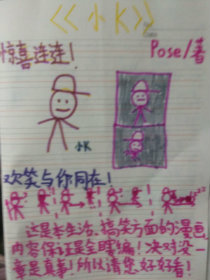 《小K》
惊喜连连！
Pose/著
小K
欢笑与你同在！
这是本生活、搞笑方面的漫画
内容保证是全瞎编！决对没一
章是真事！所以请您好好看！